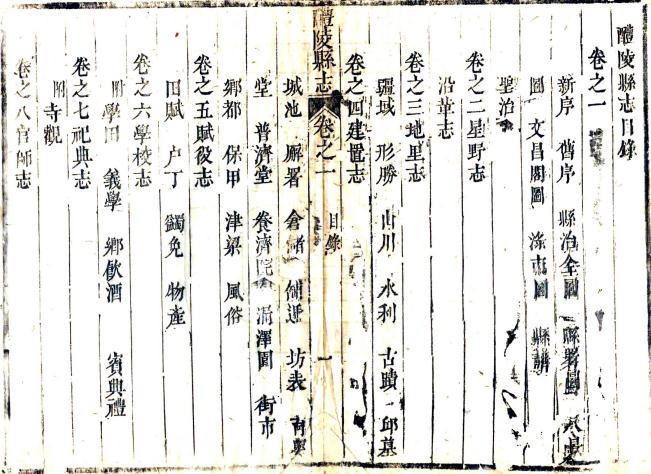 醴陵縣志目錄
卷之一
新序 舊序 縣治全圖 縣署圖
圖 文昌閣圖 淥市圖
聖治
卷之二星野志
沿革志
卷之三地里志
疆域 形勝 山川 水利 古蹟 邱墓
卷之四建置志
醴陵縣志 卷之一 目錄 一
城池 廨署 倉儲 舖遞 坊表
堂 普濟堂 養濟院 漏澤園 街市
鄉都 保甲 津梁 風俗
卷之五賦役志
田賦 户丁 蠲免 物產
卷之六學校志
附學田 義學 鄉飲酒 賓興禮
卷之七祀典志
附寺觀
卷之八官師志